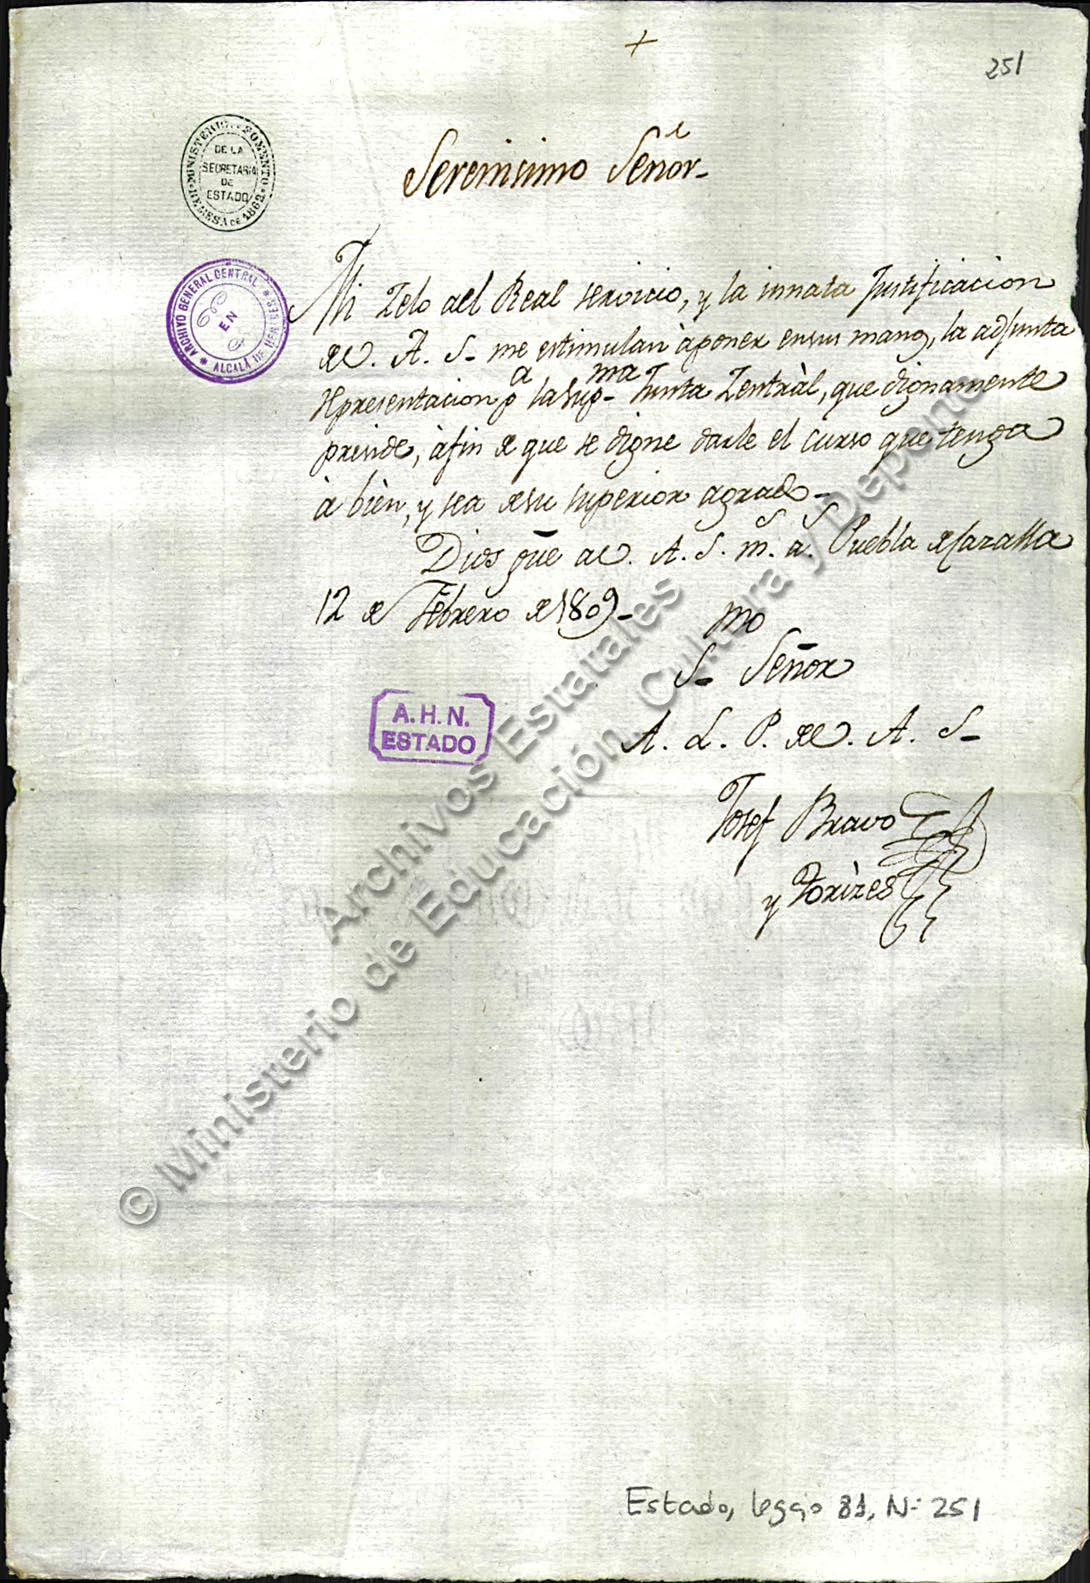 +
251
Serenisimo Señor
MINISTERIO DE FOMENTO
DE LA
SECRETARIA
DE
ESTADO
REMESA DE 1862
ARCHIVO GENERAL CENTRAL
EN
ALCALÁ DE HENARES
Mi Zelo del Real servicio, y la innata Justificacion
de V. A. S. me estimulan à poner en sus manos, la adjunta
Rpresentacion pa la Supma Junta Zentràl, que dignamente
preside, à fin de que se digne darle el curso que tenga
à bièn, y sea de su superior agrado
Dios gue a V. A. S. ms. as. Puebla de Cazalla
12 de Febrero de 1809
Smo Señor
A. L. P. de V. A. S.
Josef Bravo
y Torìres
A.H.N.
ESTADO
© Ministerio de Educación, Cultura y Deporte
Archivos Estatales
Estado, legajo 81, N.: 251